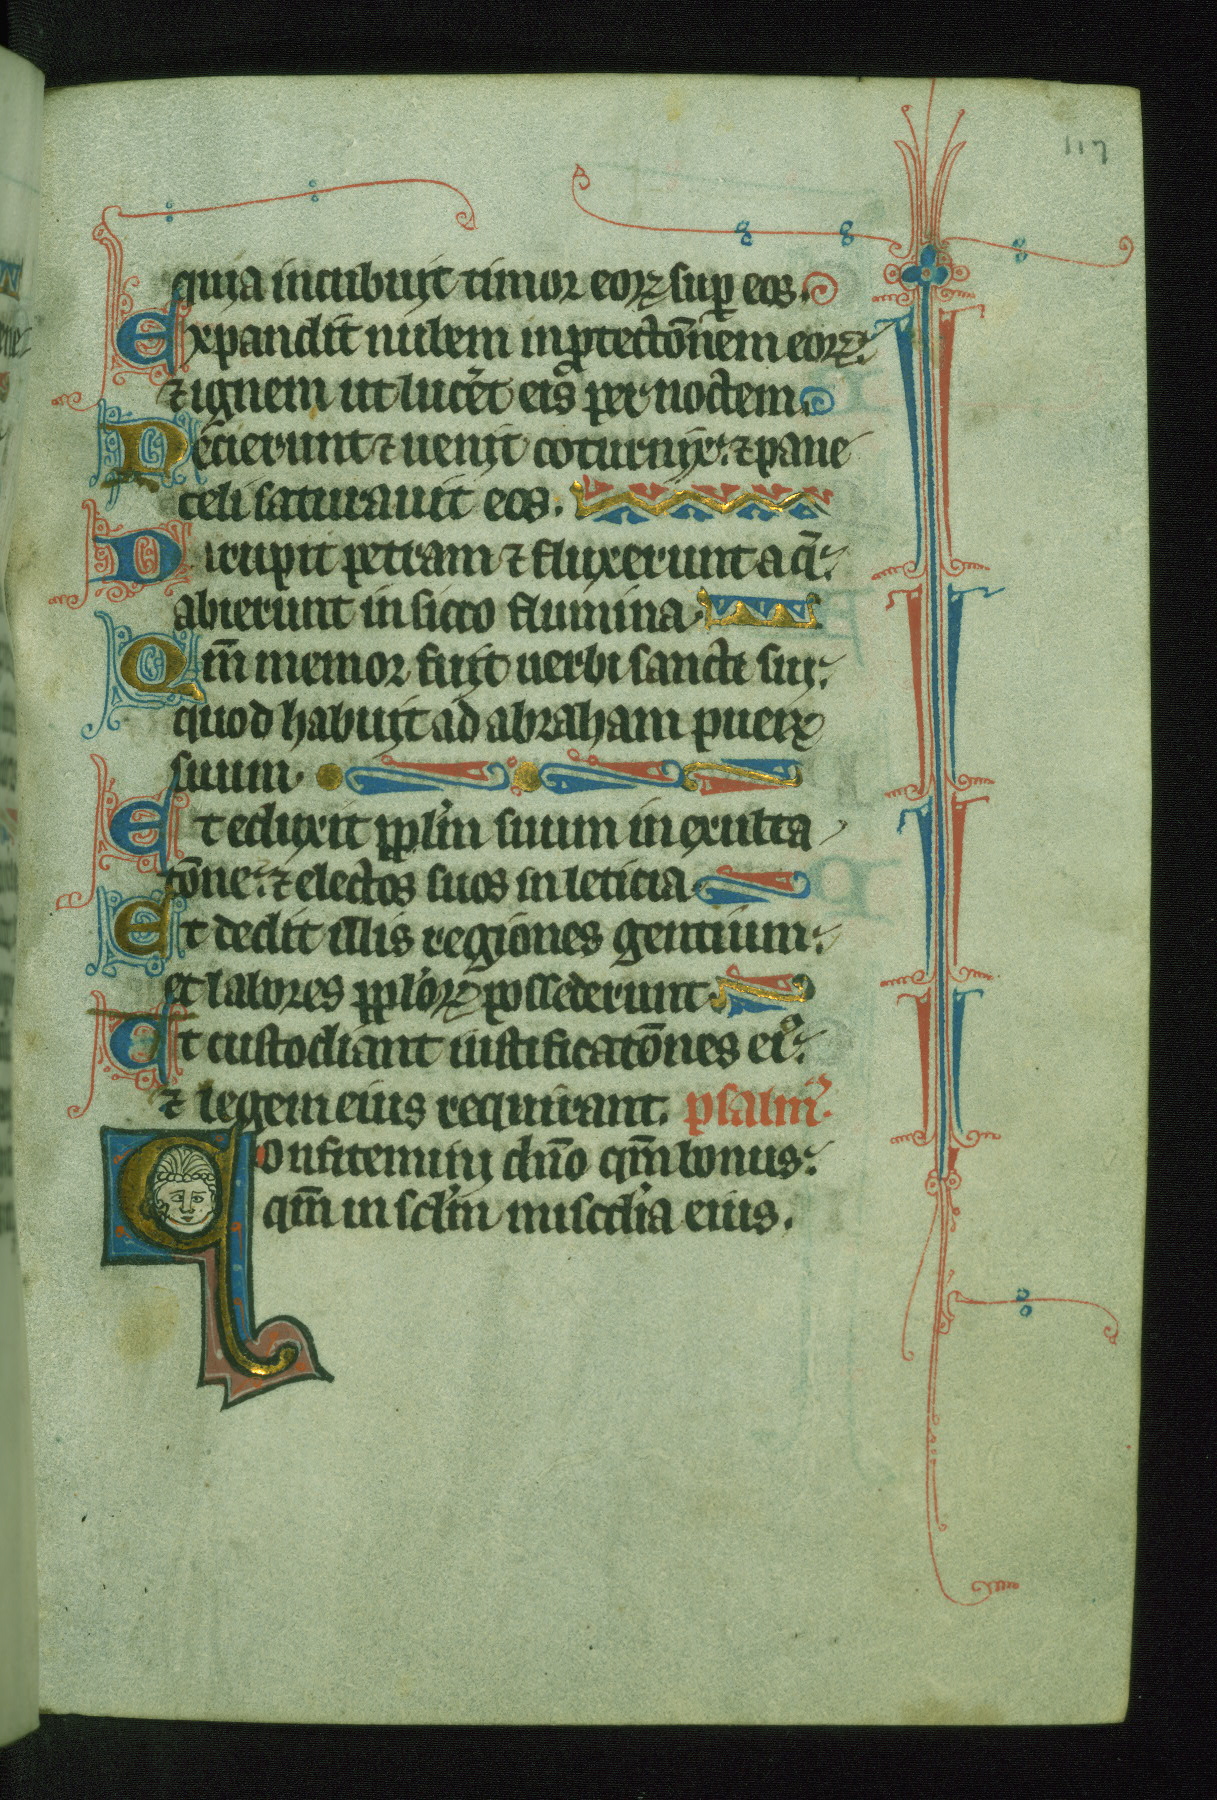 117
quia incubuit timor eoꝝ sup̱ eos.
Expandit nubem in ꝓtectōnem eoꝝ.
⁊ ignem ut lucẽt eis per noctem.
Pecierunt ⁊ uenit coturnix. ⁊ pane
celi saturauit eos.
Dirupit petram ⁊ fluxerunt aq̃.
abierunt in sicco flumina.
Qm̃ memor fuit uerbi sancti sui.
quod habuit ad abraham pueꝝ
suum.
Et eduxit ppl̃m suum in exulta
tōne. ⁊ electos suos in leticia.
Et dedit illis regiones gentium.
et labores ppl̃oꝝ possederunt.
Et custodiant iustificatōnes eiꝰ.
⁊ legem eius requirant. psalmꝰ.
Confitemini dño qm̃ bonus.
qm̃ in scl̃m miscd̃ia eius.